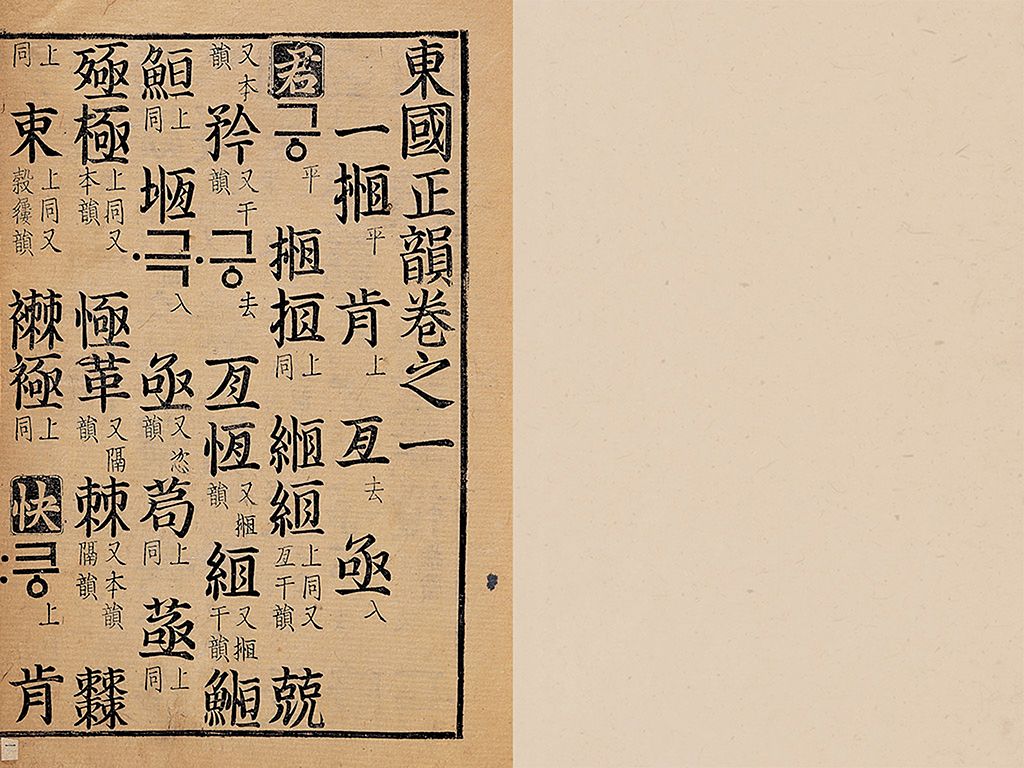 東國正韻卷之一
一揯平肯上亙去亟入
君그ᇰ平揯搄上同緪縆上同又亙干韻兢
又本韻矜又干韻·그ᇰ去亙恆又揯韻縆又揯干韻䱭
䱇上同堩·극入亟又恣韻茍上同上同
殛極上同又本韻㥛革又隔韻棘又本韻隔韻
上同上同又韻襋上同快:크ᇰ上肯